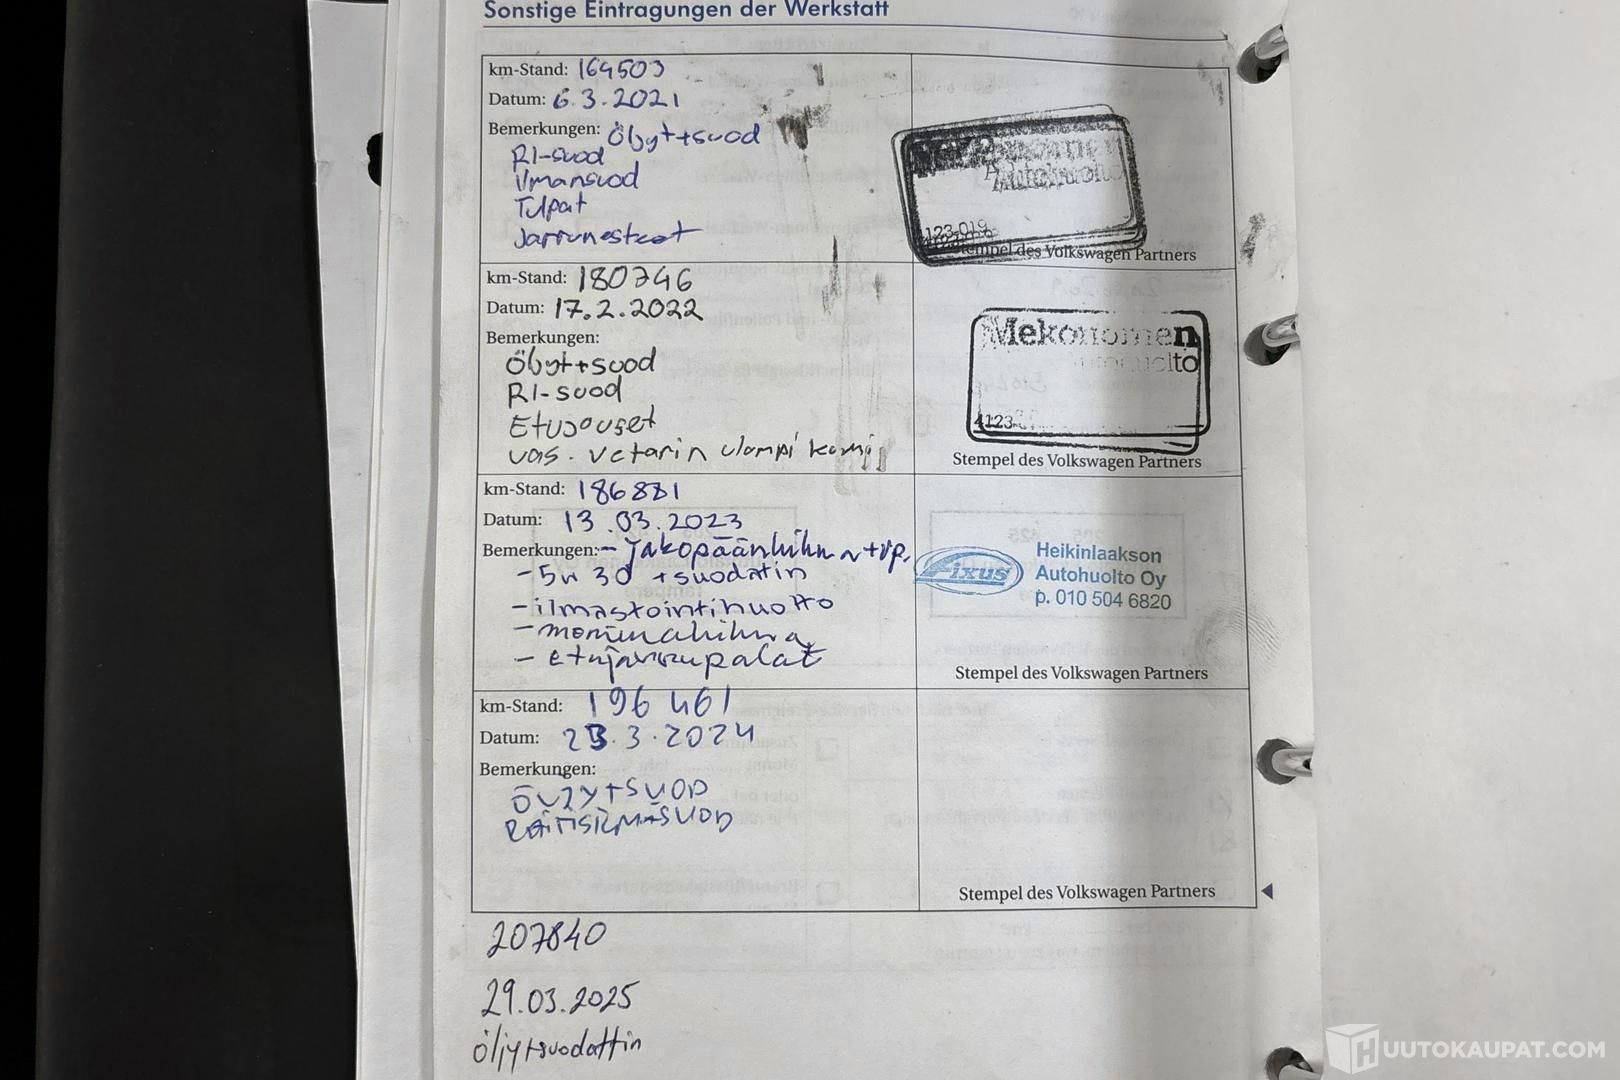 Sonstige Eintragungen der Werkstatt
km-Stand: 164503
Datum: 6.3.2021
Bemerkungen: Öljyt+suod
RI-suod
ilmansuod
Tulpat
Jarrunesteet
Mekonomen
Autohuolto
4123-019
Stempel des Volkswagen Partners
km-Stand: 180746
Datum: 17.2.2022
Bemerkungen:
Öljyt+suod
RI-suod
Etujouset
vas. vetarin ulompi kumi
Mekonomen
Autohuolto
4123-
Stempel des Volkswagen Partners
km-Stand: 186881
Datum: 13.03.2023
Bemerkungen: - jakopäänhihna+vp.
- 5w30 + suodatin
- ilmastointihuolto
- moniurahihna
- etujarrupalat
Fixus
Heikinlaakson
Autohuolto Oy
p. 010 504 6820
Stempel des Volkswagen Partners
km-Stand: 196 461
Datum: 23.3.2024
Bemerkungen:
ÖLJYT+SUOD
RAITISILMASUOD
Stempel des Volkswagen Partners
207840
29.03.2025
öljy+suodattin
HUUTOKAUPAT.COM